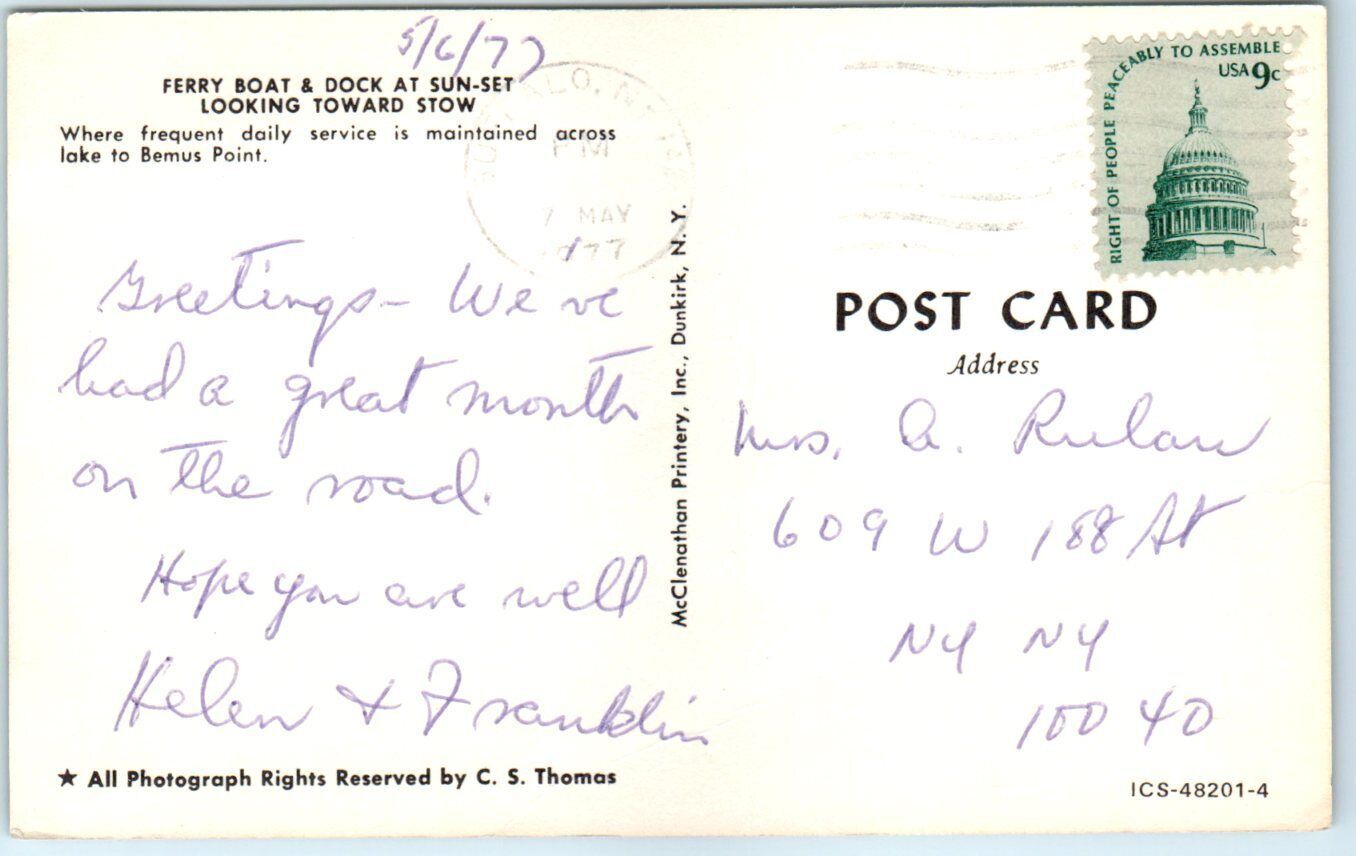 5/6/77
FERRY BOAT & DOCK AT SUN-SET
LOOKING TOWARD STOW
Where frequent daily service is maintained across
lake to Bemus Point.
PM
7 MAY
1977
Greetings - We've
had a great month
on the road.
Hope you are well
Helen & Franklin
★ All Photograph Rights Reserved by C. S. Thomas
McClenathan Printery, Inc., Dunkirk, N. Y.
RIGHT OF PEOPLE PEACEABLY TO ASSEMBLE
USA 9c
POST CARD
Address
Mrs. A. Rulau
609 W 188 St
NY NY
10040
ICS-48201-4